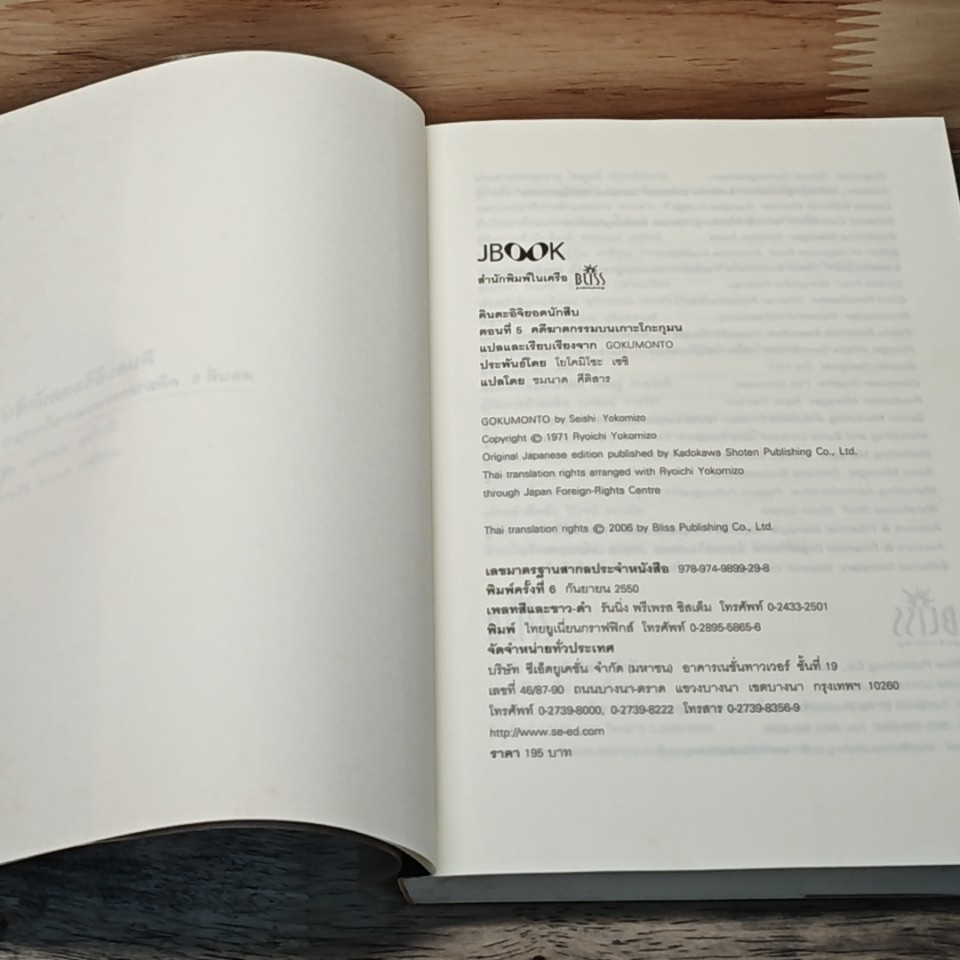 JBOOK
สำนักพิมพ์ในเครือ BLISS
คินดะอิจิยอดนักสืบ
ตอนที่ 5 คดีฆาตกรรมบนเกาะโกะกุมน
แปลและเรียบเรียงจาก GOKUMONTO
ประพันธ์โดย โยโคมิโซะ เซชิ
แปลโดย ชมนาด ศีติสาร
GOKUMONTO by Seishi Yokomizo
Copyright © 1971 Ryoichi Yokomizo
Original Japanese edition published by Kadokawa Shoten Publishing Co., Ltd.
Thai translation rights arranged with Ryoichi Yokomizo
through Japan Foreign-Rights Centre
Thai translation rights © 2006 by Bliss Publishing Co., Ltd.
เลขมาตรฐานสากลประจำหนังสือ 978-974-9899-29-8
พิมพ์ครั้งที่ 6 กันยายน 2550
เพลทสีและขาว-ดำ รันนิ่ง พรีเพรส ซิสเต็ม โทรศัพท์ 0-2433-2501
พิมพ์ ไทยยูเนี่ยนกราฟฟิกส์ โทรศัพท์ 0-2895-5865-6
จัดจำหน่ายทั่วประเทศ
บริษัท ซีเอ็ดยูเคชั่น จำกัด (มหาชน) อาคารเนชั่นทาวเวอร์ ชั้นที่ 19
เลขที่ 46/87-90 ถนนบางนา-ตราด แขวงบางนา เขตบางนา กรุงเทพฯ 10260
โทรศัพท์ 0-2739-8000, 0-2739-8222 โทรสาร 0-2739-8356-9
http://www.se-ed.com
ราคา 195 บาท